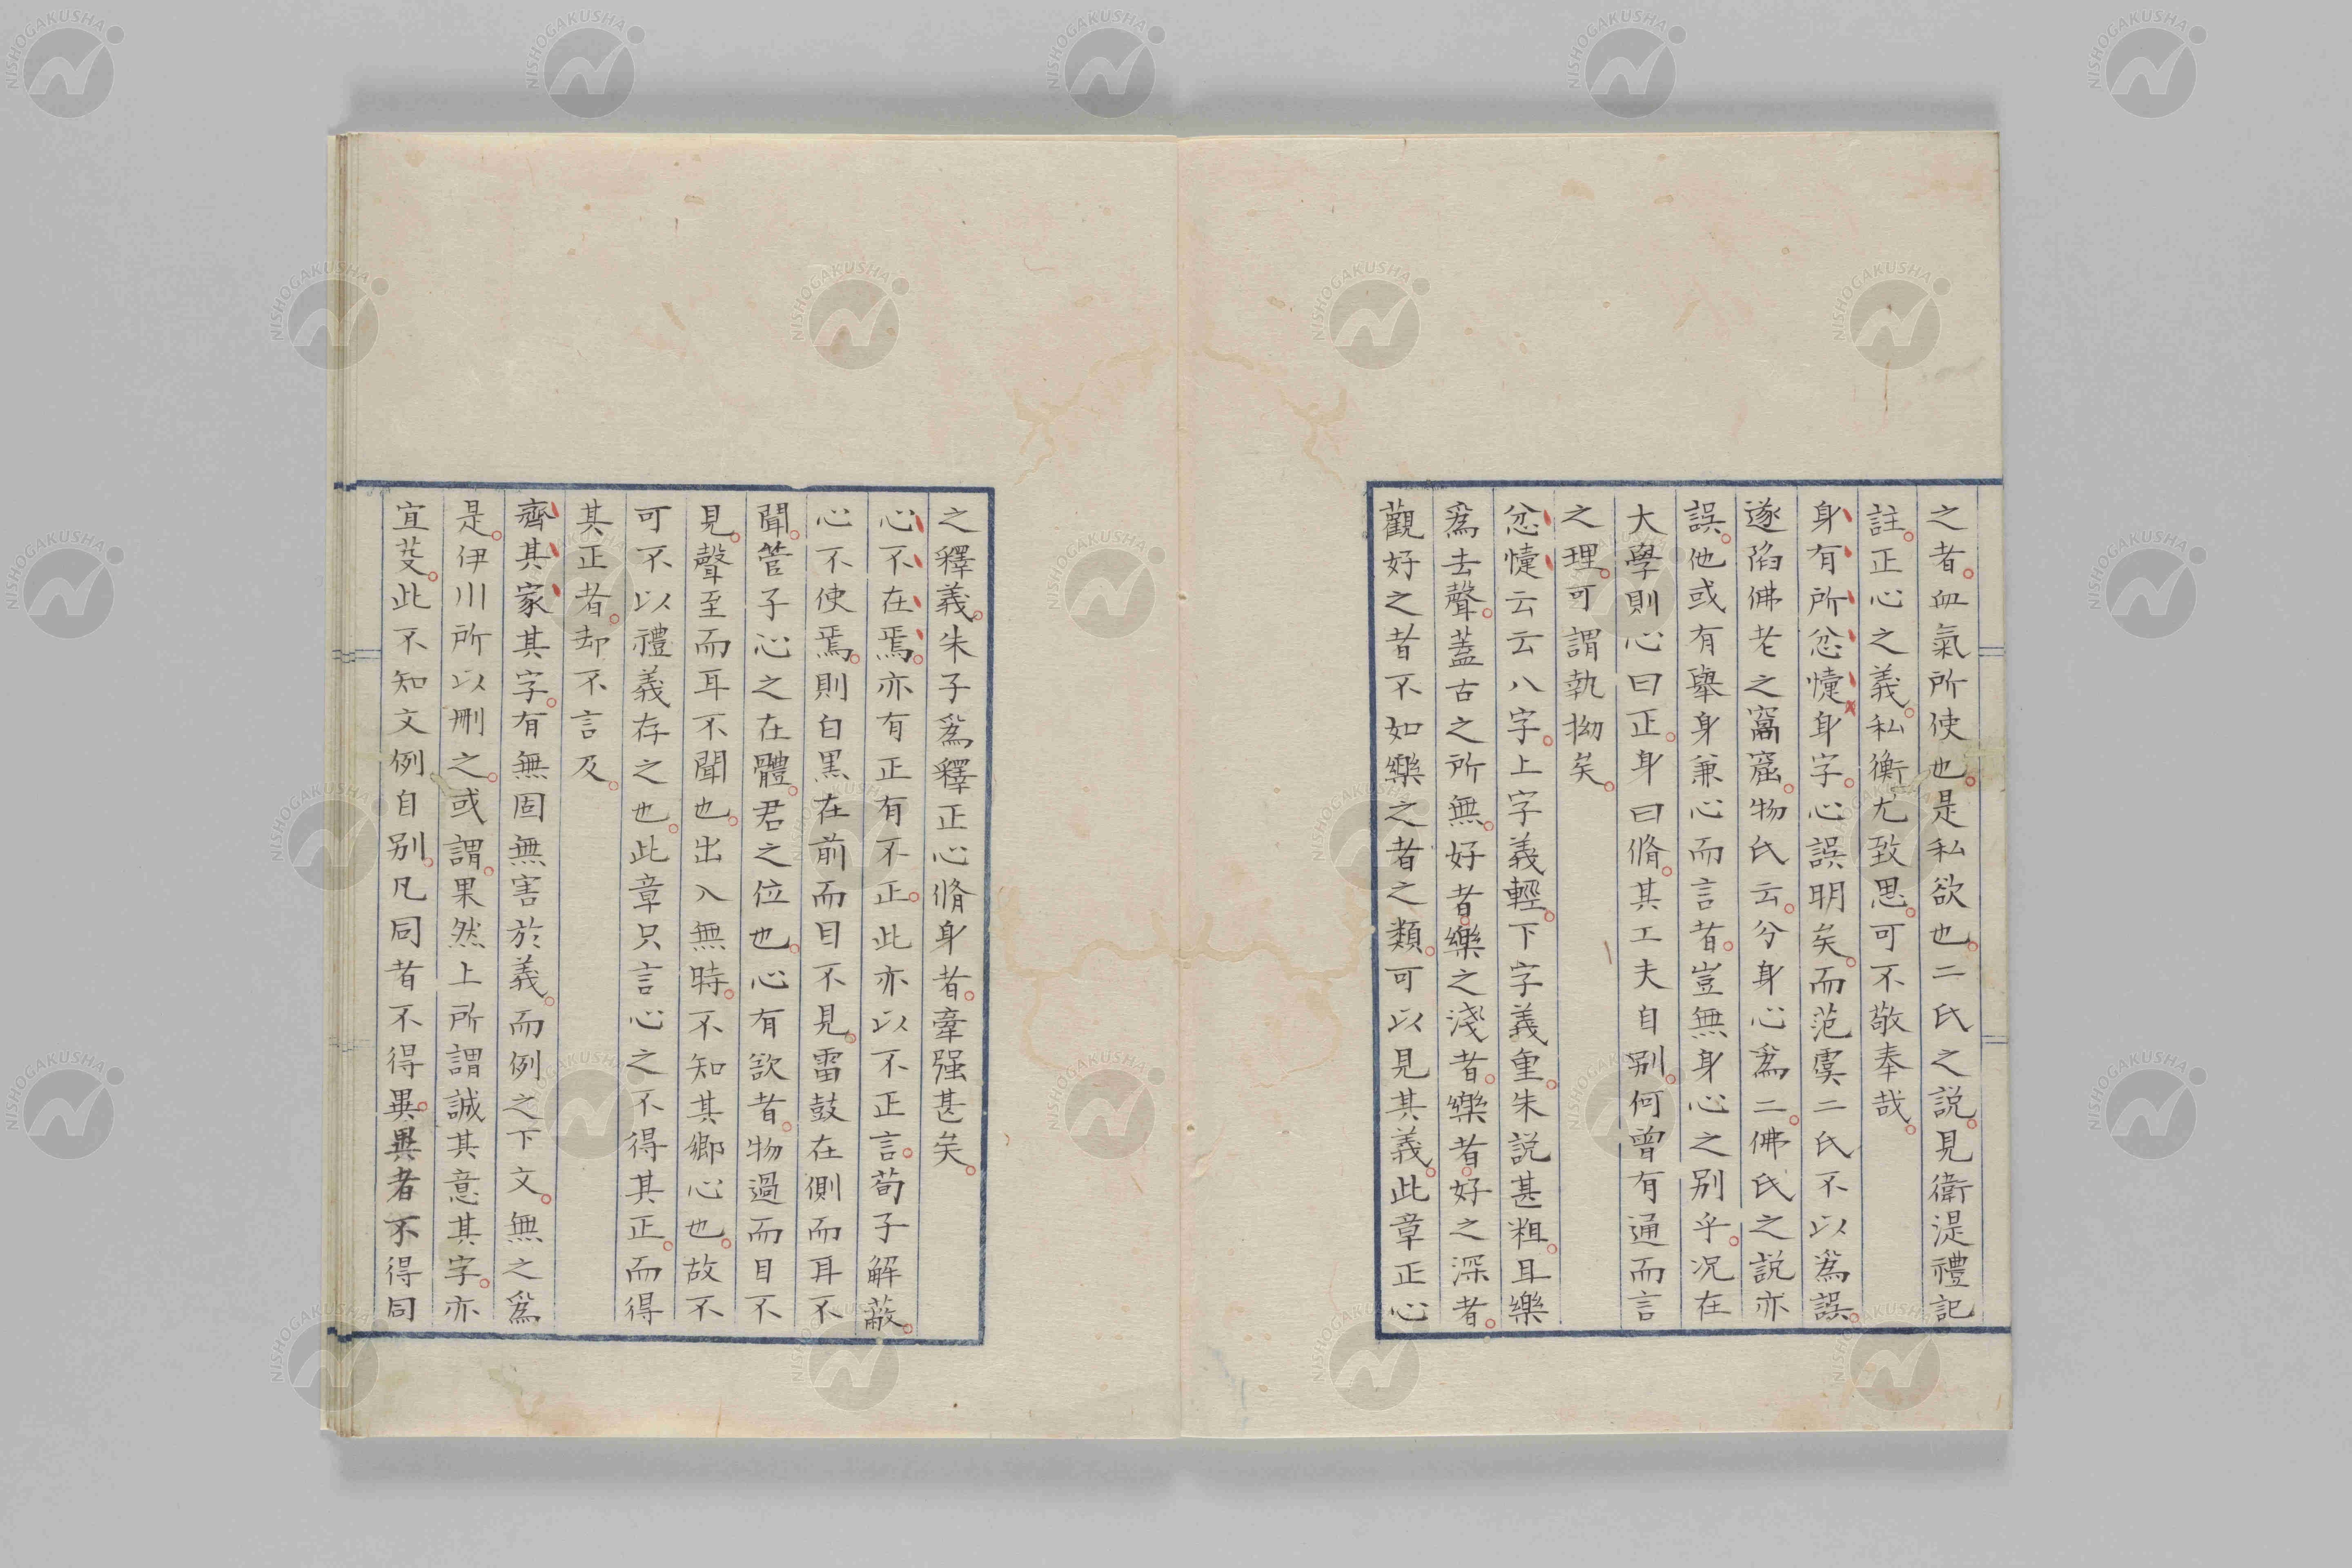 之者血氣所使也是私欲也二氏之説見衛湜禮記
註正心之義私衡尤致思可不敬奉哉
身有所忿懥身字心誤明矣而范虞二氏不以爲誤
遂陷佛老之窩窟物氏云分身心爲二佛氏之説亦
誤他或有舉身兼心而言者豈無身心之別乎况在
大學則心曰正身曰脩其工夫自別何曾有通而言
之理可謂執拗矣
忿懥云云八字上字義輕下字義重朱説甚粗且樂
爲去聲蓋古之所無好者樂之淺者樂者好之深者
觀好之者不如樂之者之類可以見其義此章正心
之釋義朱子爲釋正心脩身者牽强甚矣
心不在焉亦有正有不正此亦以不正言荀子解蔽
心不使焉則白黒在前而目不見雷鼓在側而耳不
聞管子心之在體君之位也心有欲者物過而目不
見聲至而耳不聞也出入無時不知其郷心也故不
可不以禮義存之也此章只言心之不得其正而得
其正者却不言及
齊其家其字有無固無害於義而例之下文無之爲
是伊川所以刪之或謂果然上所謂誠其意其字亦
宜芟此不知文例自別凡同者不得異異者不得同
NISHOGAKUSHA